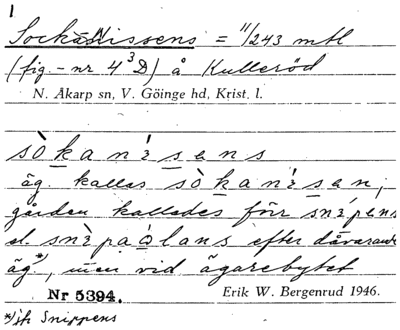 1
Sockanissens = 11/243 mtl
(fig.-nr 4³D) å Kulleröd
N. Åkarp sn, V. Göinge hd, Krist. l.
sòkanisens
äg. kallas sòkanisen;
gården kallades förr snipens
el. snipaolans efter dåvarande
äg*), men vid ägarebytet
Nr 5394. Erik W. Bergenrud 1946.
*/jfr Snippens